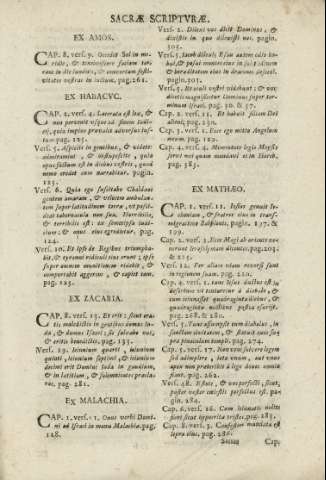 SACRÆ SCRIPTVRÆ.
EX AMOS.
CAP. 8. vers. 9. Occidet Sol in meridie, & tenebrescere faciam terram in die luminis, & convertam festivitates vestras in luctum, pag. 261.
EX HABACVC.
CAP. 1. vers. 4. Lacerata est lex, & non pervenit usque ad finem iudicium, quia impius prævalet adversus iustum pag. 125.
Vers. 5. Aspicite in gentibus, & videte admiramini, & obstupescite, quia opus factum est in diebus vestris, quod nemo credet cum narrabitur. pagin. 125.
Vers. 6. Quia ego suscitabo Chaldæos gentem amaram, & velocem ambulantem super latitudinem terræ, ut possideat tabernacula non sua. Horribilis, & terribilis est: ex semetipsa iudicium, & onus eius egredietur. pag. 124.
Vers. 10. Et ipse de Regibus triumphabit, & tyranni ridiculi eius erunt; ipse super omnem munitionem ridebit, & comportabit aggerem, & capiet eam. pag. 125.
EX ZACARIA.
CAP. 8. vers. 13. Et erit: sicut eratis maledictio in gentibus domus Iuda, & domus Israel; sic salvabo vos, & eritis benedictio, pag. 135.
Vers. 19. Ieiunium quarti, ieiunium quinti, ieiunium septimi, & ieiunium decimi erit Domui Iuda in gaudium, & in lætitiam, & solemnitates præclaras. pag. 281.
EX MALACHIA.
CAP. 1. vers. 1. Onus verbi Domini ad Israel in manu Malachiæ. pag. 128.
Vers. 2. Dilexi vos dicit Dominus, & dixistis in quo dilexisti nos. pagin. 305.
Vers. 3. Iacob dilexi, Esau autem odio habui, & posui montes eius in solitudinem & hereditatem eius in dracones deserti. pagin. 305.
Vers. 5. Et oculi vestri videbunt; & vos dicetis magnificetur Dominus super terminum Israel. pag. 30. & 57.
Cap. 2. vers. 11. Et habuit filiam Dei alieni, pag. 230.
Cap. 3. vers. 1. Ecce ego mitto Angelum meum. pag. 129.
Cap. 4. vers. 4. Mementote legis Moysis servi mei quam mandavi ei in Horeb, pag. 385.
EX MATHÆO.
CAP. 1. vers. 11. Iosias genuit Iechoniam, & fratres eius in transmigratione Babylonis, pagin. 197. & 199.
Cap. 2. vers. 1. Ecce Magi ab oriente venerunt Ierosolymam dicentes, pag. 205. & 215.
Vers. 12. Per aliam viam reversi sunt in regionem suam. pag. 220.
Cap. 4. vers. 1. tunc Iesus ductus est in desertum ut tentaretur à diabolo, & cum ieiunasset quadraginta diebus, & quadraginta noctibus postea esuriit. pag. 268. & 280.
Vers. 5. Tunc assumpsit eum diabolus, in sanctam civitatem, & statuit eum supra pinnaculum templi, pag. 274.
Cap. 5. vers. 17. Non veni solvere legem sed adimplere, iota unum, aut unus apex non præteribit à lege donec omnia fiant. pag. 262.
Vers. 48. Estote, & vos perfecti, sicut, pater vester cælestis perfectus est. pagin. 284.
Cap. 6. vers. 16. Cum ieiunatis nolite fieri sicut hypocritæ tristes. pag. 283.
Cap. 8. vers. 3.
Cap.